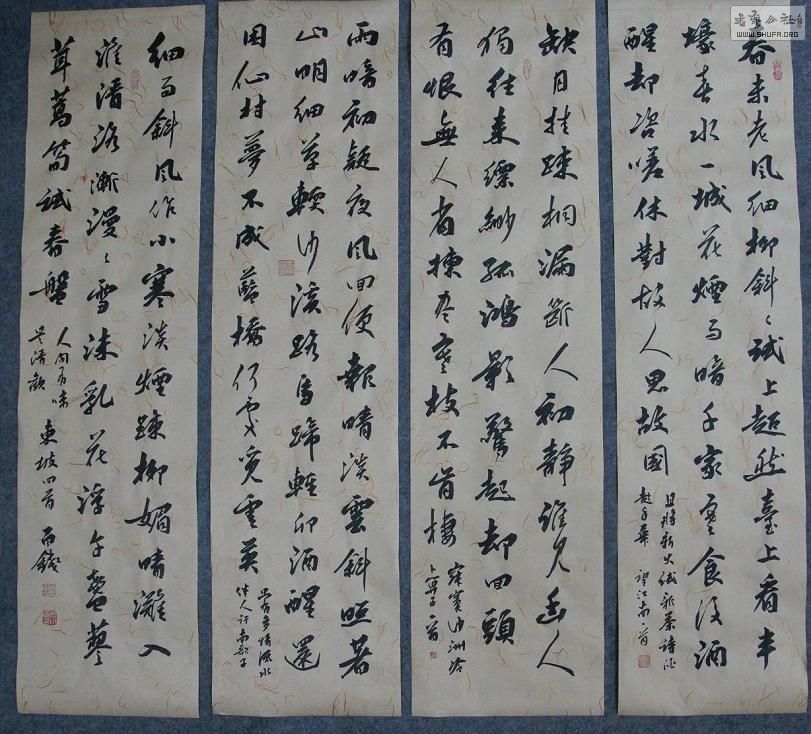 春未老風細柳斜〻試上超然臺上看半
壕春水一城花煙雨暗千家寒食後酒
醒却咨嗟休對故人思故國
且將新火試新茶詩酒
趁年華 望江南一首
缺月挂疎桐漏斷人初靜誰見幽人
獨往來縹緲孤鴻影驚起却回頭
有恨無人省揀尽寒枝不肯棲
寂寞沙洲冷
卜算子一首
雨暗初疑夜風回便報晴淡雲斜照著
山明細草輭沙溪路馬蹄輕卯酒醒還
困仙村夢不成藍橋何處覓雲英
只有多情流水
伴人行 南歌子
細雨斜風作小寒淡煙疎柳媚晴灘入
淮清洛漸漫〻雪沫乳花浮午盞蓼
茸蒿筍試春盤
人間有味
是清歡 東坡四首
書法公社
WWW.SHUFA.ORG